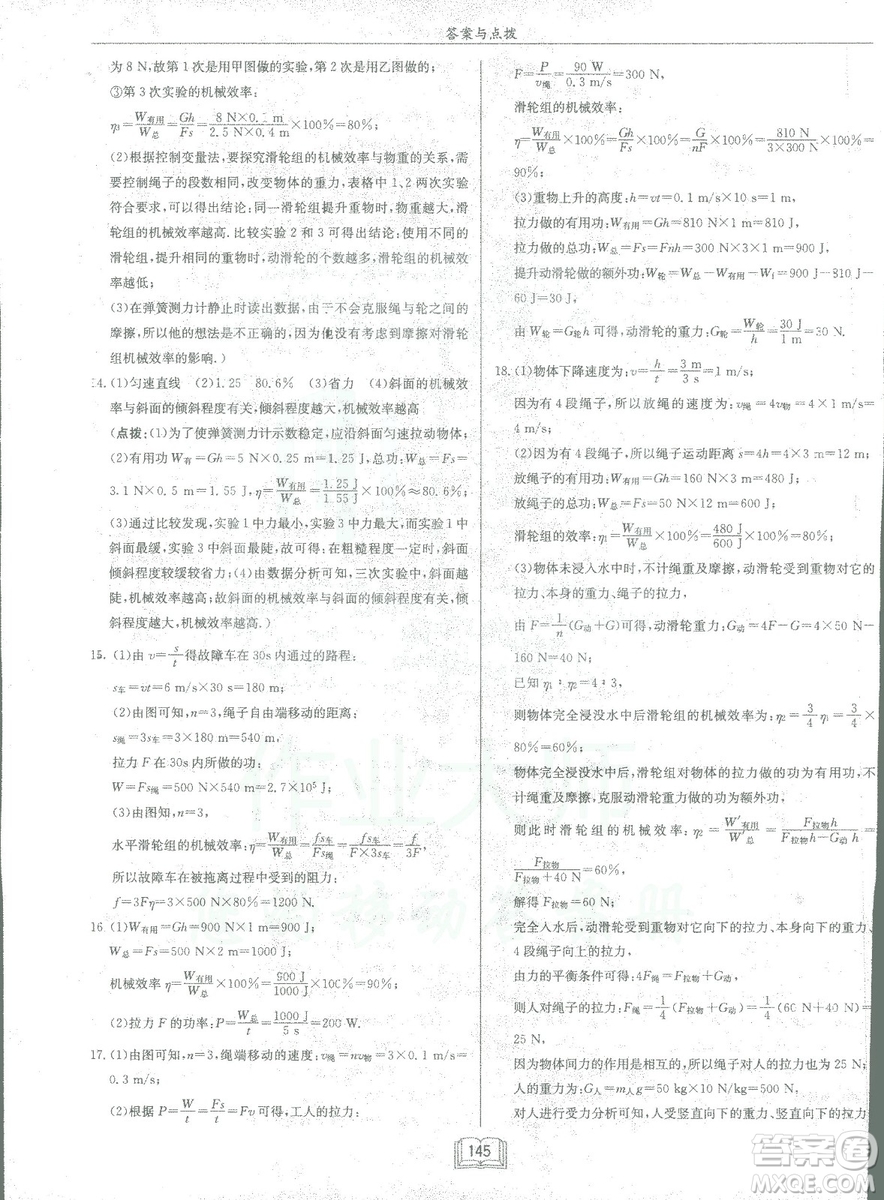 答案与点拨
为 8 N,故第 1 次是用甲图做的实验,第 2 次是用乙图做的;
③第 3 次实验的机械效率:
η₃=W有用/W总=Gh/Fs=8 N×0. m/2.5 N×0.4 m×100%=80%;
(2)根据控制变量法,要探究滑轮组的机械效率与物重的关系,需
要控制绳子的段数相同,改变物体的重力,表格中 1、2 两次实验
符合要求,可以得出结论:同一滑轮组提升重物时,物重越大,滑
轮组的机械效率越高.比较实验 2 和 3 可得出:使用不同的
滑轮组,提升相同的重物时,动滑轮的个数越多,滑轮组的机械
效率越低;
(3)在弹簧测力计静止时读出数据,由于不会克服绳与轮之间的
摩擦,所以他的想法是不正确的,因为他没有考虑到摩擦对滑轮
组机械效率的影响.)
14. (1)匀速直线 (2)1.25 80.6% (3)省力 (4)斜面的机械效
率与斜面的倾斜程度有关,倾斜程度越大,机械效率越高
(点拨:(1)为了使弹簧测力计示数稳定,应沿斜面匀速拉动物体;
(2)有用功 W有=Gh=5 N×0.25 m=1.25 J,总功:W总=Fs=
3.1 N×0.5 m=1.55 J,η=W有用/W总=1.25 J/1.55 J×100%≈80.6%;
(3)通过比较发现,实验 1 中力最小,实验 3 中力最大,而实验 1 中
斜面最缓,实验 3 中斜面最陡,由此可得:在粗糙程度一定时,斜面
倾斜程度较缓较省力;(4)由数据分析可知,三次实验中,斜面越
陡,机械效率越高;故斜面的机械效率与斜面的倾斜程度有关,倾
斜程度越大,机械效率越高.)
15. (1)由 v=s/t得故障车在 30s 内通过的路程:
s车=vt=6 m/s×30 s=180 m;
(2)由图可知,n=3,绳子自由端移动的距离:
s绳=3s车=3×180 m=540 m,
拉力 F 在 30s 内所做的功:
W=Fs绳=500 N×540 m=2.7×10⁵ J;
(3)由图知,n=3,
水平滑轮组的机械效率:η=W有用/W总=fs车/Fs绳=fs车/F×3s车=f/3F,
所以故障车在被拖离过程中受到的阻力:
f=3Fη=3×500 N×80%=1200 N.
16. (1)W有用=Gh=900 N×1 m=900 J,
W总=Fs=500 N×2 m=1000 J,
机械效率 η=W有用/W总×100%=900 J/1000 J×100%=90%;
(2)拉力 F 的功率:P=W总/t=1000 J/5 s=200 W.
17. (1)由图可知,n=3,绳端移动的速度:v绳=nv物=3×0.1 m/s=
0.3 m/s;
(2)根据 P=W/t=Fs/t=Fv 可得,工人的拉力:
F=P/v绳=90 W/0.3 m/s=300 N,
滑轮组的机械效率:
η=W有用/W总×100%=Gh/Fs×100%=G/nF×100%=810 N/3×300 N×100%=
90%.
(3)重物上升的高度:h=vt=0.1 m/s×10 s=1 m,
拉力做的有用功:W有用=Gh=810 N×1 m=810 J,
拉力做的总功:W总=Fs=Fnh=300 N×3×1 m=900 J,
提升动滑轮做的额外功:W轮=W总-W有用-Wf=900 J-810 J-
60 J=30 J,
由 W轮=G轮h 可得,动滑轮的重力:G轮=W轮/h=30 J/1 m=30 N.
18. (1)物体下降速度为:v=h/t=3 m/3 s=1 m/s;
因为有 4 段绳子,所以放绳的速度为:v绳=4v物=4×1 m/s=
4 m/s.
(2)因为有 4 段绳子,所以绳子运动距离 s=4h=4×3 m=12 m,
放绳子的有用功:W有用=Gh=160 N×3 m=480 J,
放绳子的总功:W总=Fs=50 N×12 m=600 J,
滑轮组的效率:η₁=W有用/W总×100%=480 J/600 J×100%=80%;
(3)物体未浸入水中时,不计绳重及摩擦,动滑轮受到重物对它的
拉力、本身的重力、绳子的拉力,
由 F=1/n(G动+G)可得,动滑轮重力:G动=4F-G=4×50 N-
160 N=40 N;
已知 η₁:η₂=4:3,
则物体完全浸没水中后滑轮组的机械效率为:η₂=3/4η₁=3/4×
80%=60%;
物体完全浸没水中后,滑轮组对物体的拉力做的功为有用功,不
计绳重及摩擦,克服动滑轮重力做的功为额外功,
则此时滑轮组的机械效率:η₂=W′有用/W′总=F拉物h/F拉物h+G动h=
F拉物/F拉物+40 N=60%,
解得 F拉物=60 N;
完全入水后,动滑轮受到重物对它向下的拉力、本身的重力、
4 段绳子向上的拉力,
由力的平衡条件可得:4F绳=F拉物+G动,
则人对绳子的拉力:F绳=1/4(F拉物+G动)=1/4(60 N+40 N)=
25 N,
因为物体间力的作用是相互的,所以绳子对人的拉力也为 25 N;
人的重力为:G人=m人g=50 kg×10 N/kg=500 N,
对人进行受力分析可知,人受竖直向下的重力、竖直向下的拉力
145
答案圈
MXQE.COM
作业大师